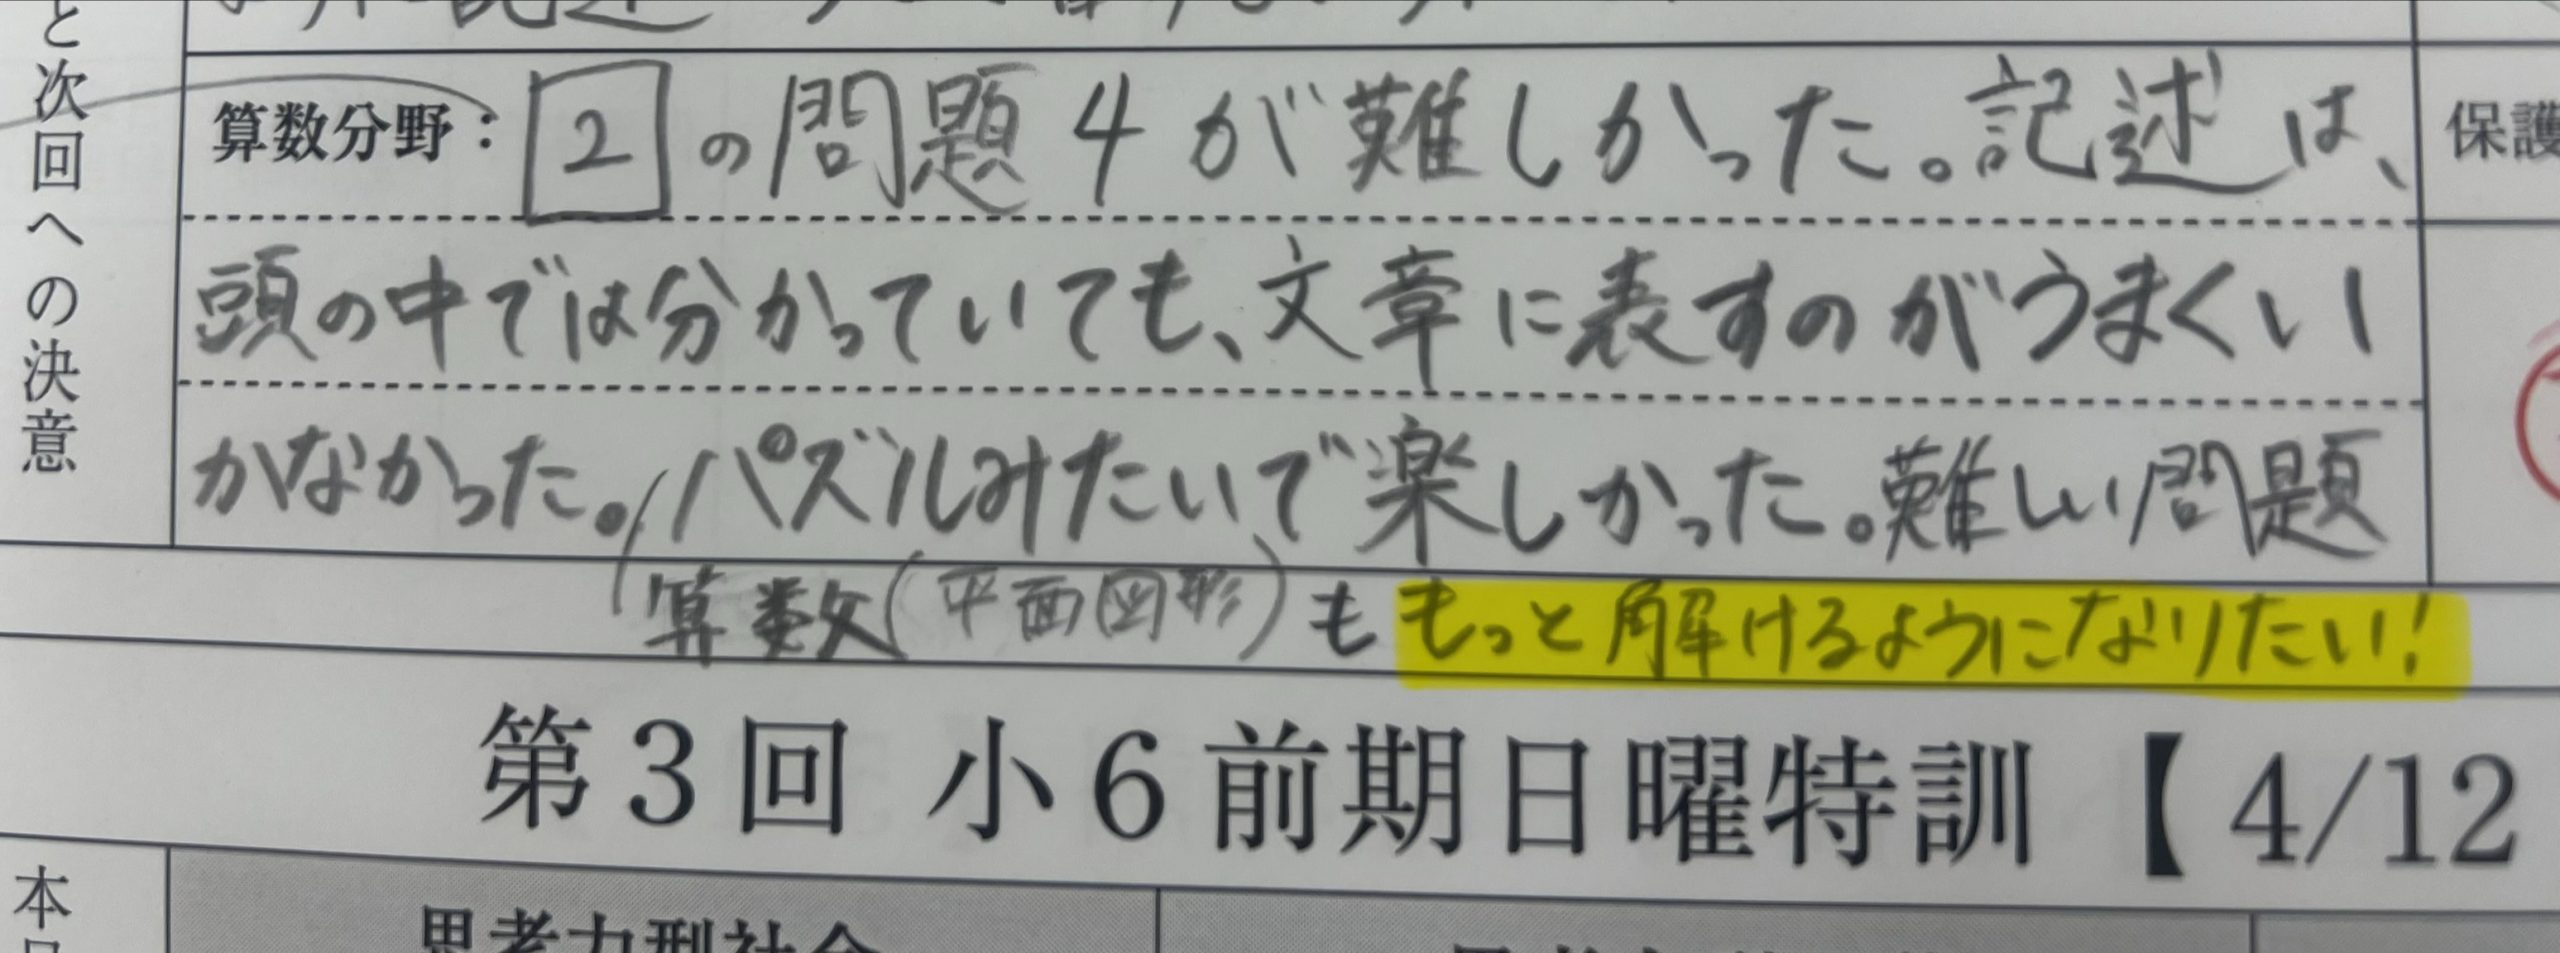 と次回への決意
算数分野：2の問題4が難しかった。記述は、
頭の中では分かっていても、文章に表すのがうまくい
かなかった。パズルみたいで楽しかった。難しい問題
算数(平面図形)ももっと解けるようになりたい!
保護
第3回 小6前期日曜特訓【4/12
本
思考力型社会